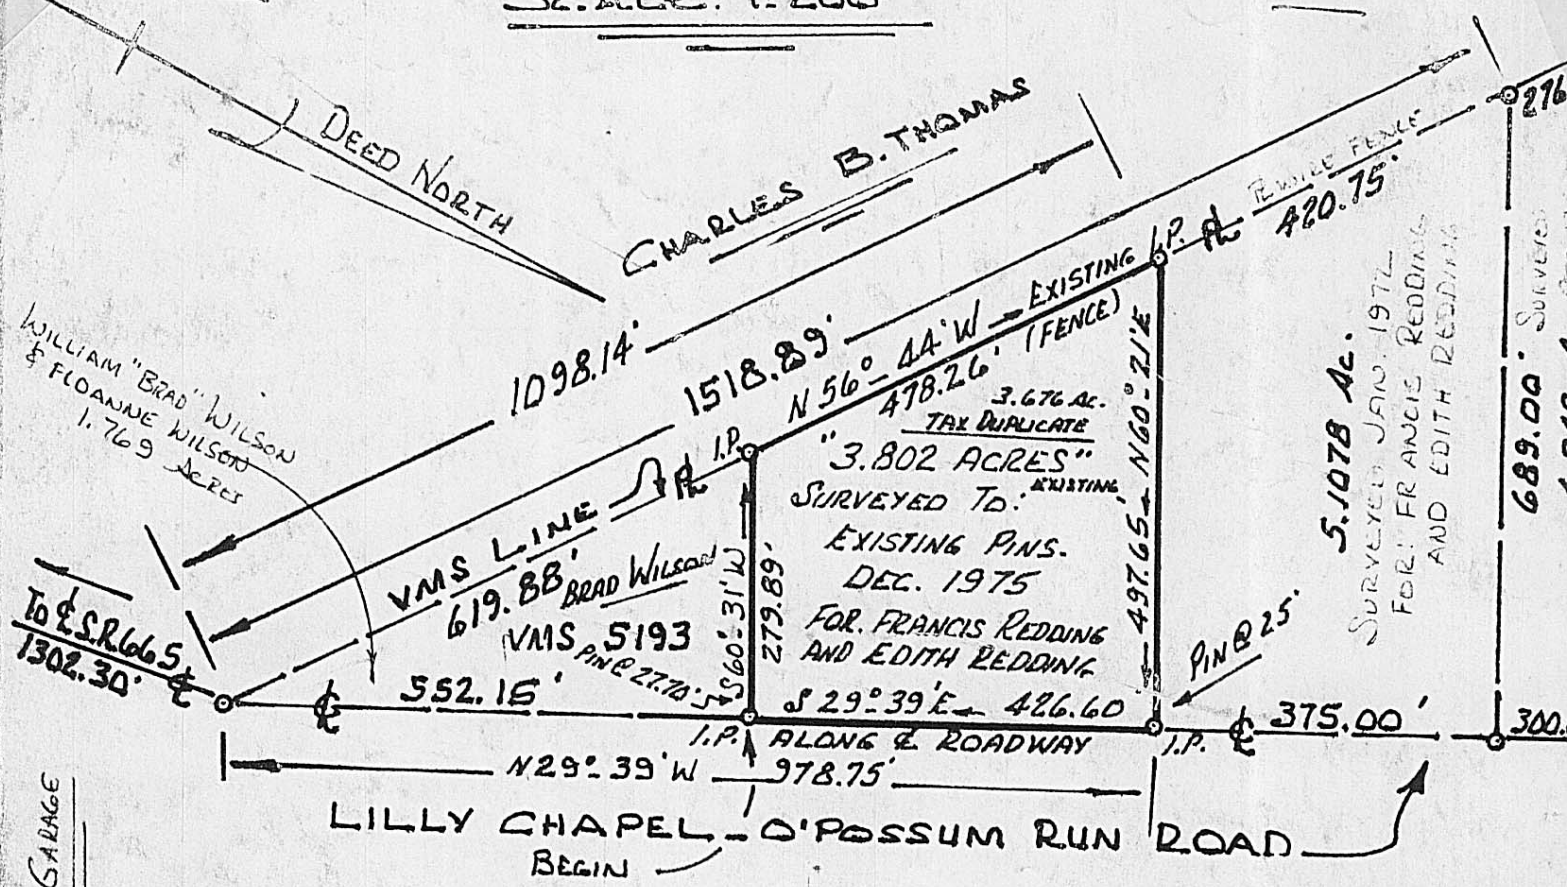 SCALE: 1"=200'
DEED NORTH
CHARLES B. THOMAS
1098.14'
1518.89'
WILLIAM "BRAD" WILSON
& FLOANNE WILSON
1.769 ACRES
VMS LINE
619.88'
BRAD WILSON
VMS 5193
PIN @ 27.70'
I.P.
N 56°- 44' W EXISTING
478.26' (FENCE)
I.P.
WIRE FENCE
420.75'
276
3.676 AC.
TAX DUPLICATE
"3.802 ACRES"
EXISTING
SURVEYED TO:
EXISTING PINS.
DEC. 1975
FOR. FRANCIS REDDING
AND EDITH REDDING
S60°-31'W
279.89'
497.65' N60°-21'E
5.1078 Ac.
SURVEYED JAN. 1972
FOR: FRANCIS REDDING
AND EDITH REDDING
689.00' SURVEYED
PIN @ 25'
TO ℄ S.R. 665
1302.30' ℄
℄ 552.15'
S 29°-39'E 426.60
I.P. ALONG ℄ ROADWAY I.P.
℄ 375.00'
300.
N29°-39'W 978.75'
LILLY CHAPEL - O'POSSUM RUN ROAD
BEGIN
GARAGE